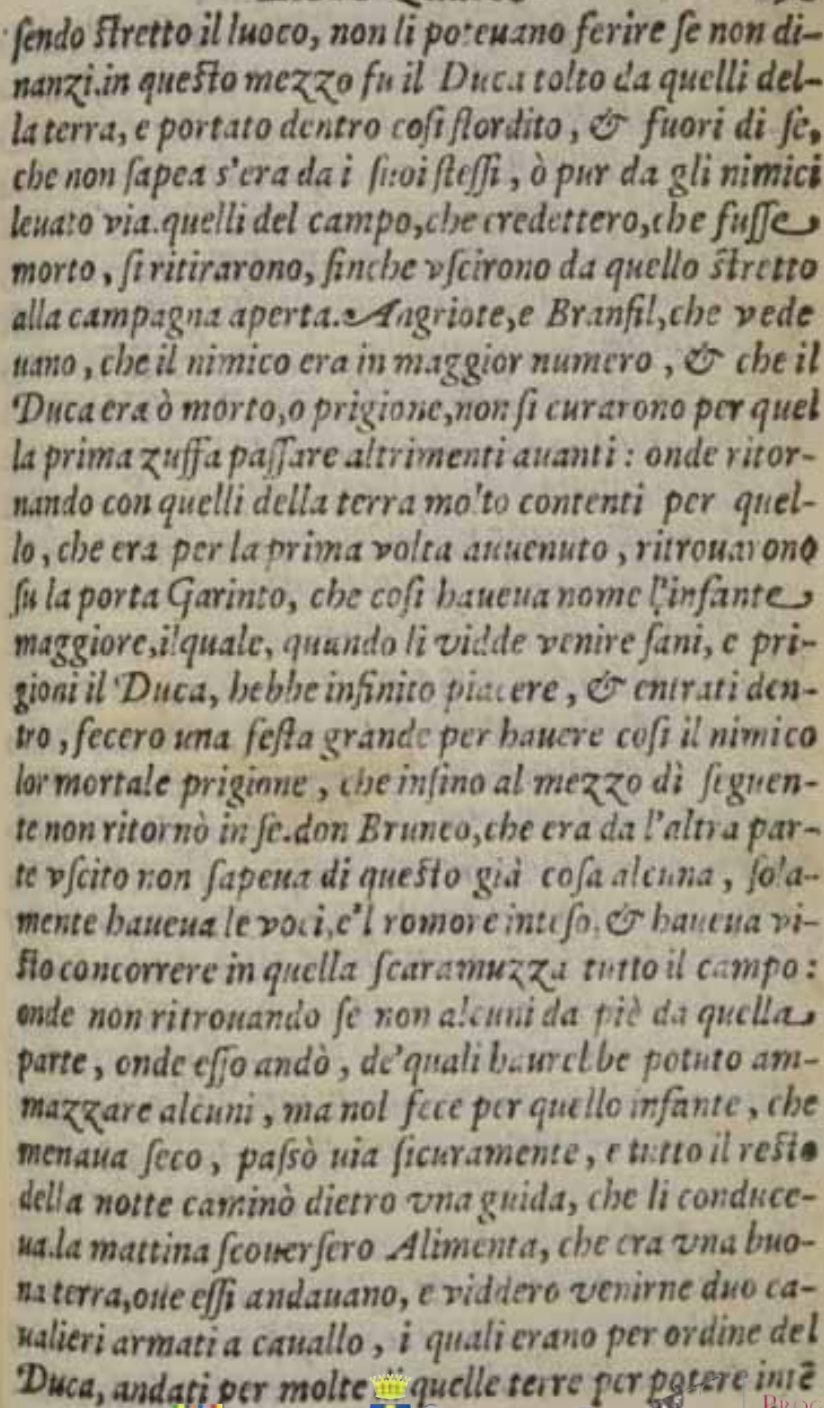 ſendo ſtretto il luoco, non li poteuano ferire ſe non di-
nanzi.in queſto mezzo fu il Duca tolto da quelli del-
la terra, e portato dentro coſi ſtordito, & fuori di ſe,
che non ſapea s'era da i ſuoi ſteſſi, ò pur da gli nimici
leuato via.quelli del campo,che credettero,che fuſſe
morto, ſi ritirarono, finche vſcirono da quello ſtretto
alla campagna aperta.Angriote,e Branfil,che vede
uano, che il nimico era in maggior numero, & che il
Duca era ò morto,o prigione,non ſi curarono per quel
la prima zuffa paſſare altrimenti auanti: onde ritor-
nando con quelli della terra molto contenti per quel-
lo, che era per la prima volta auuenuto, ritrouarono
ſu la porta Garinto, che coſi haueua nome l'infante
maggiore,ilquale, quando li vidde venire ſani, e pri-
gioni il Duca, hebbe infinito piacere, & entrati den-
tro, fecero una feſta grande per hauere coſi il nimico
lor mortale prigione, che inſino al mezzo dì ſeguen-
te non ritornò in ſe.don Bruneo,che era da l'altra par-
te vſcito non ſapeua di queſto già coſa alcuna, ſola-
mente haueua le voci,e'l romore inteſo, & haueua vi-
ſto concorrere in quella ſcaramuzza tutto il campo:
onde non ritrouando ſe non alcuni da piè da quella
parte, onde eſſo andò, de'quali haurebbe potuto am-
mazzare alcuni, ma nol fece per quello infante, che
menaua ſeco, paſsò uia ſicuramente, e tutto il reſto
della notte caminò dietro vna guida, che li conduce-
ua.la mattina ſcouerſero Alimenta, che era vna buo-
na terra,oue eſſi andauano, e viddero venirne duo ca-
ualieri armati a cauallo, i quali erano per ordine del
Duca, andati per molte quelle terre per potere intē